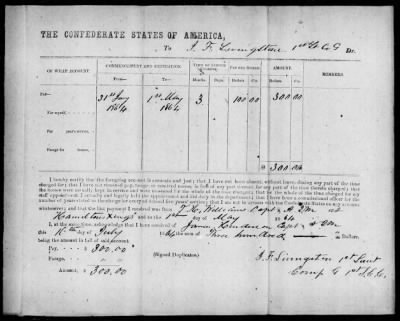 THE CONFEDERATE STATES OF AMERICA,
To J. F. Livingston 1st Lt Co G Dr.
ON WHAT ACCOUNT. COMMENCEMENT AND EXPIRATION. TERM OF SERVICE CHARGED. PAY PER MONTH. AMOUNT. REMARKS.
From— To— Months. Days. Dolls. Cts. Dollars. Cts.
Pay—
For myself, 31st Jany 1864 1st May 1864 3 100 00 300 00
For years' service,
Forage for horses,
$ 300.00
I hereby certify that the foregoing account is accurate and just; that I have not been absent, without leave, during any part of the
time charged for; that I have not received pay, forage, or received money in lieu of any part thereof, for any part of the time therein charged; that
the horses were actually kept in service and were mustered for the whole of the time charged; that for the whole of the time charged for my
staff appointment, I actually and legally held the appointment and did duty in the department; that I have been a commissioned officer for the
number of years stated in the charge for every additional five years' service; that I am not in arrears with the Confederate States on any account
whatsoever; and that the last payment I received was from T. H. Williams Capt & A QM at
Hamiltons Xings and to the 1st day of May 1864
I, at the same time, acknowledge that I have received of James Capt & QM
this 10th day of July 1864 the sum of Three hundred Dollars,
being the amount in full of said account.
Pay, $300.00
Forage,
Amount, $300.00
(Signed Duplicates)
J. F. Livingston 1st Lieut
Comp G 1st S.C.